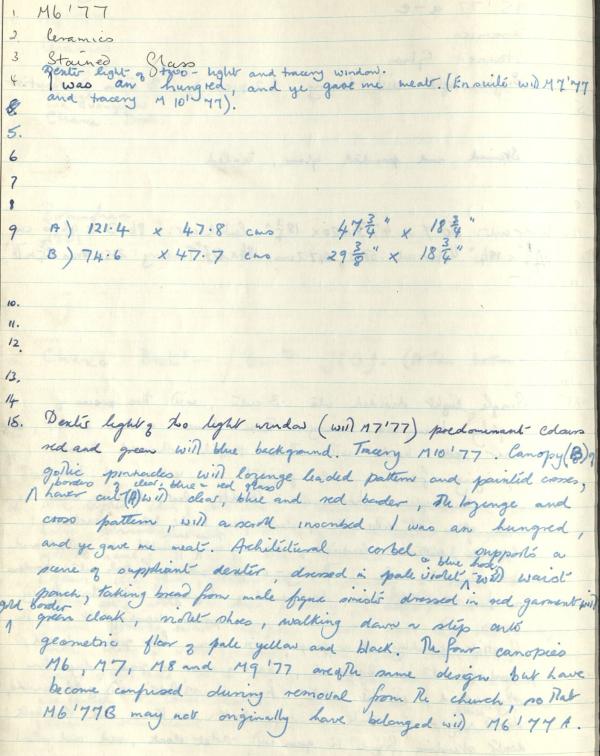 1. M6'77
2 Ceramics
3 Stained Glass
Dexter light of two-light and tracery window.
4 I was an hungred, and ye gave me meat. (En suite with M7'77
and tracery M10'77).
5.
6
7
8
9 A) 121.4 x 47.8 cms 47 3/4" x 18 3/4"
B) 74.6 x 47.7 cms 29 3/8" x 18 3/4"
10.
11.
12.
13.
14
15. Dexter light of two light window (with M7'77) predominant colours
red and green with blue background. Tracery M10'77. Canopy (B) of
gothic pinnacles with lozenge leaded pattern and painted crosses,
borders of clear, blue & red glass
lower cut (A) with clear, blue and red border, the lozenge and
cross pattern, with a scroll inscribed I was an hungred,
and ye gave me meat. Architectural corbel supports a
scene of suppliant dexter, dressed in pale violet & blue hose, with waist
pouch, taking bread from male figure sinister dressed in red garment with
gold border green cloak, violet shoes, walking down a step onto
geometric floor of pale yellow and black. The four canopies
M6, M7, M8 and M9'77 are of the same design but have
become confused during removal from the church, so that
M6'77B may not originally have belonged with M6'77A.